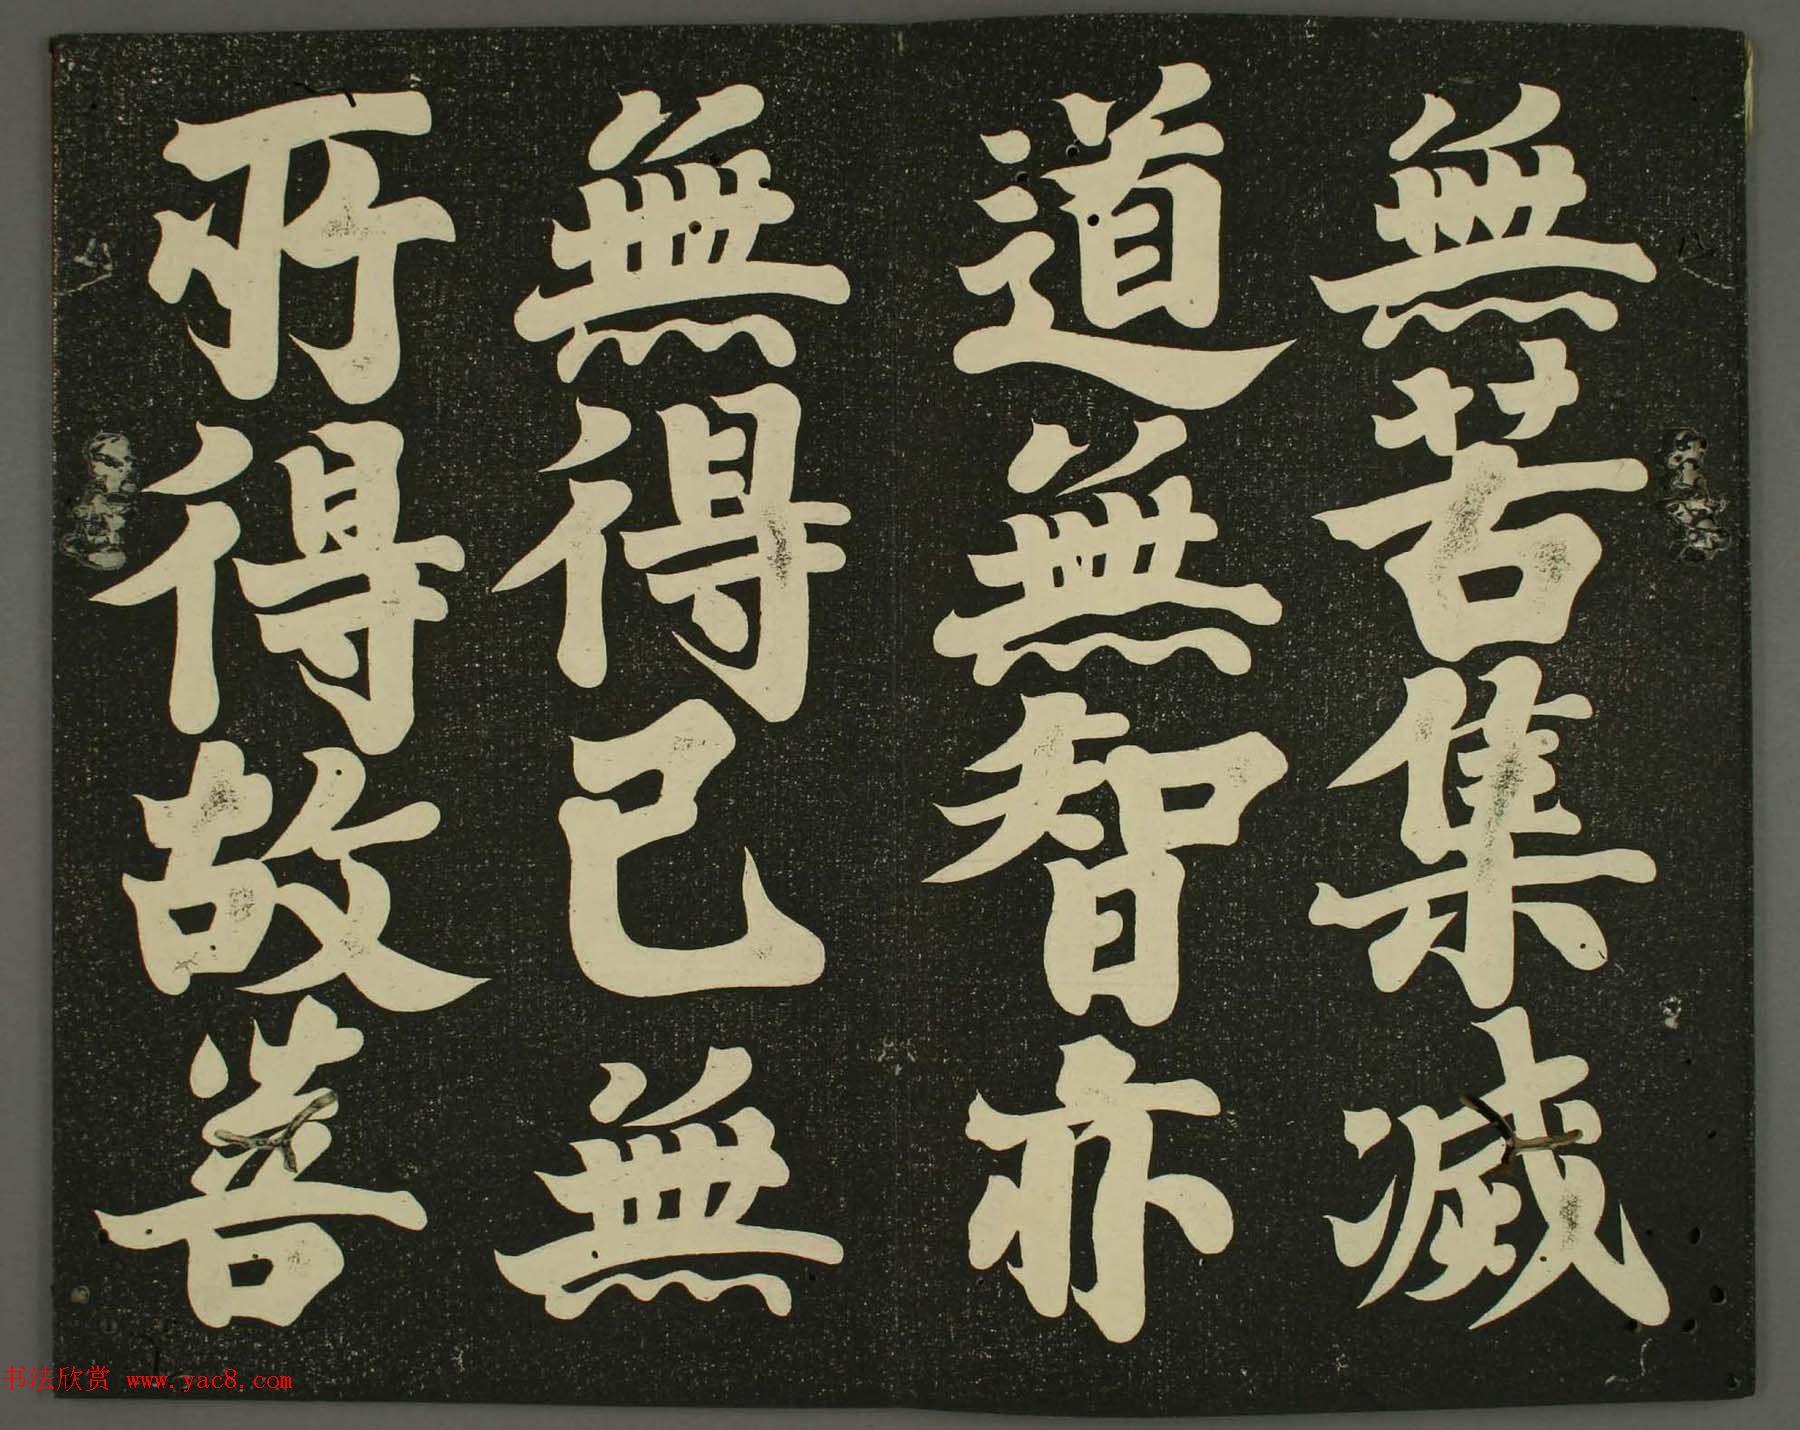 無苦集滅
道無智亦
無得已無
所得故菩
书法欣赏 www.yac8.com